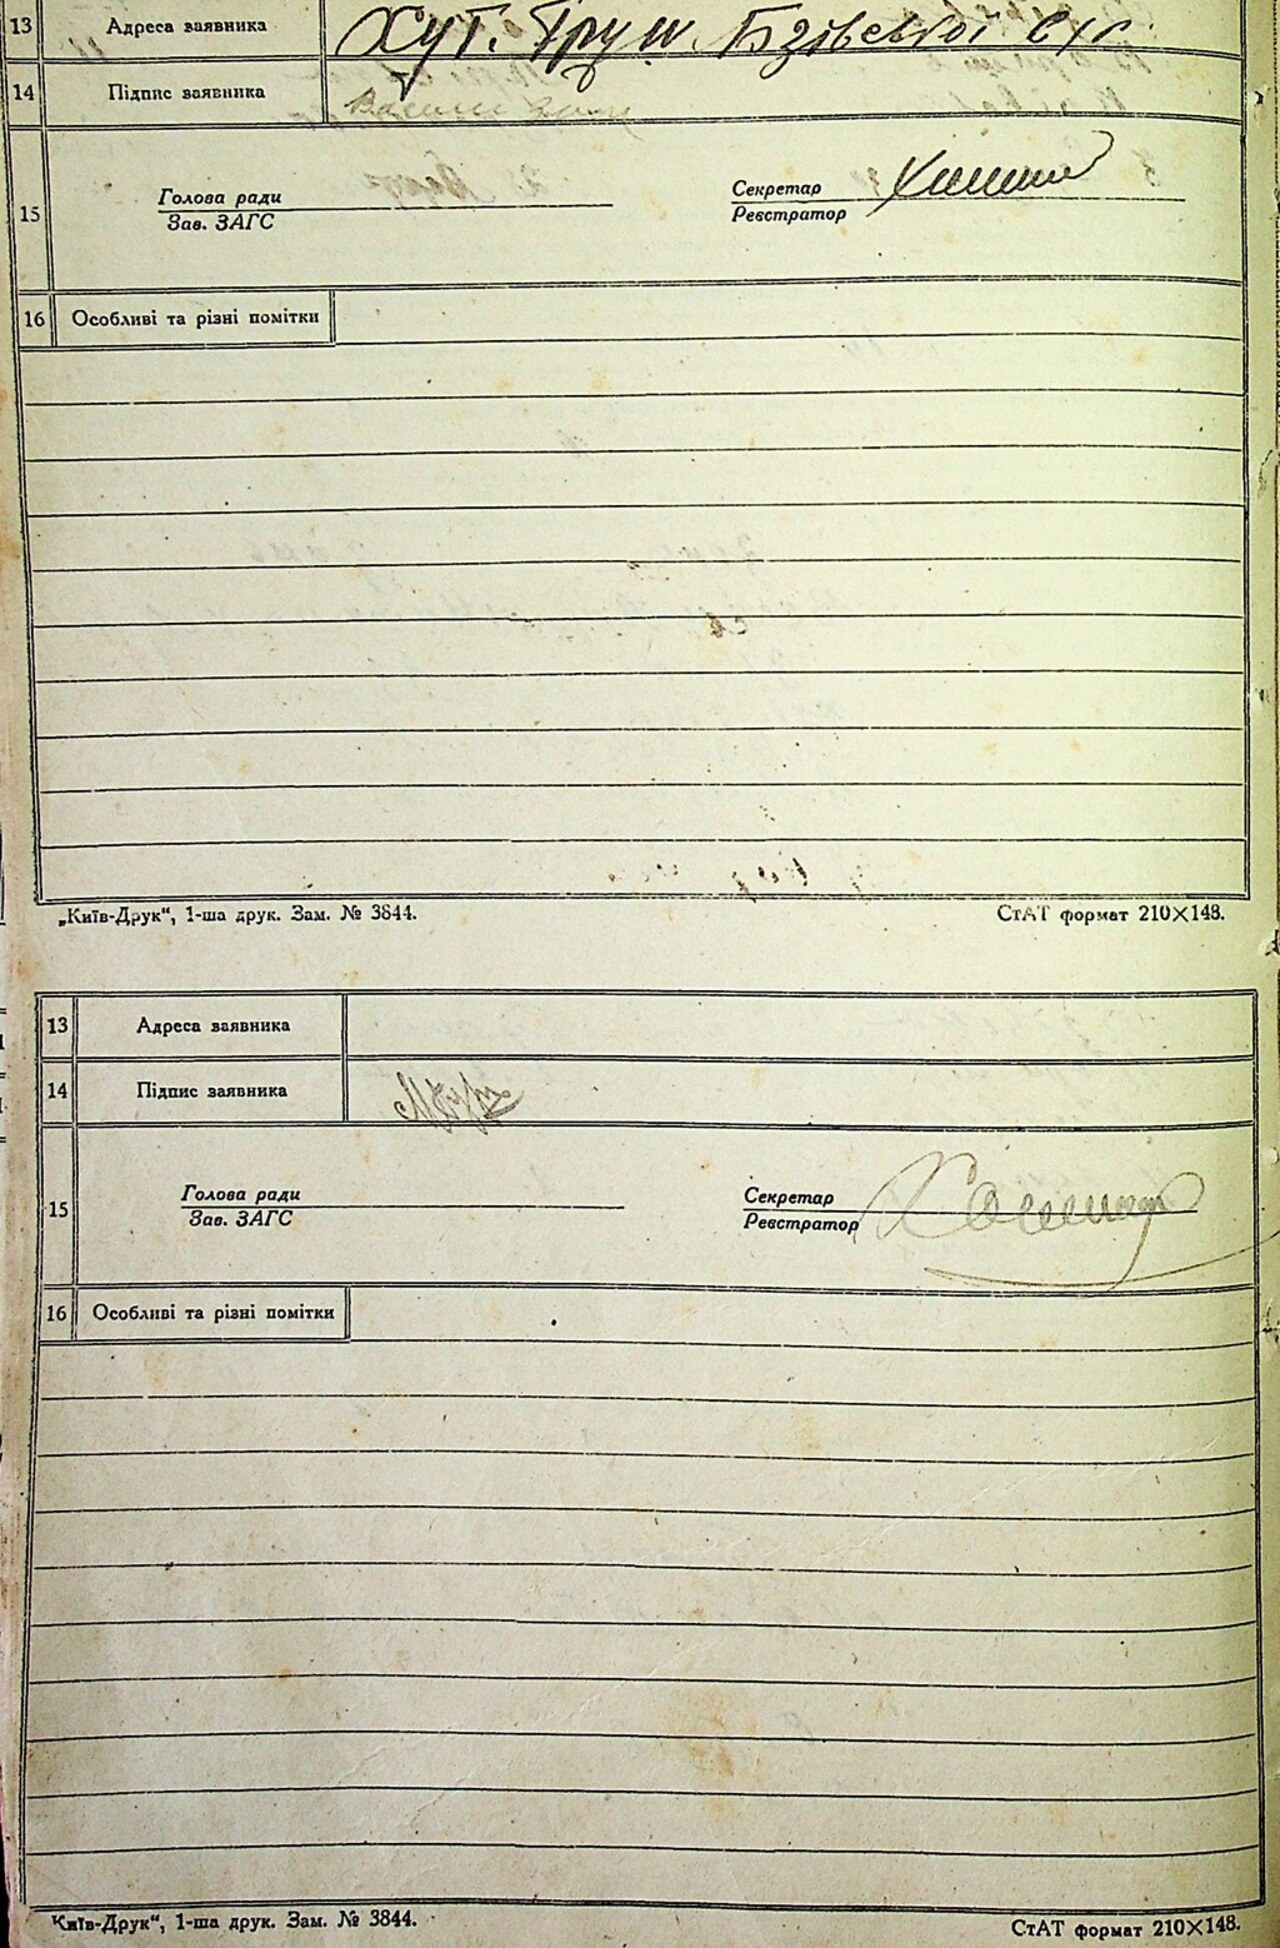 13 Адреса заявника Хут. Груш. Бзівської с/г
14 Підпис заявника
15 Голова ради Секретар
Зав. ЗАГС Реєстратор
16 Особливі та різні помітки
„Київ-Друк“, 1-ша друк. Зам. № 3844. СтАТ формат 210×148.
13 Адреса заявника
14 Підпис заявника
15 Голова ради Секретар
Зав. ЗАГС Реєстратор
16 Особливі та різні помітки
Київ-Друк“, 1-ша друк. Зам. № 3844. СтАТ формат 210×148.